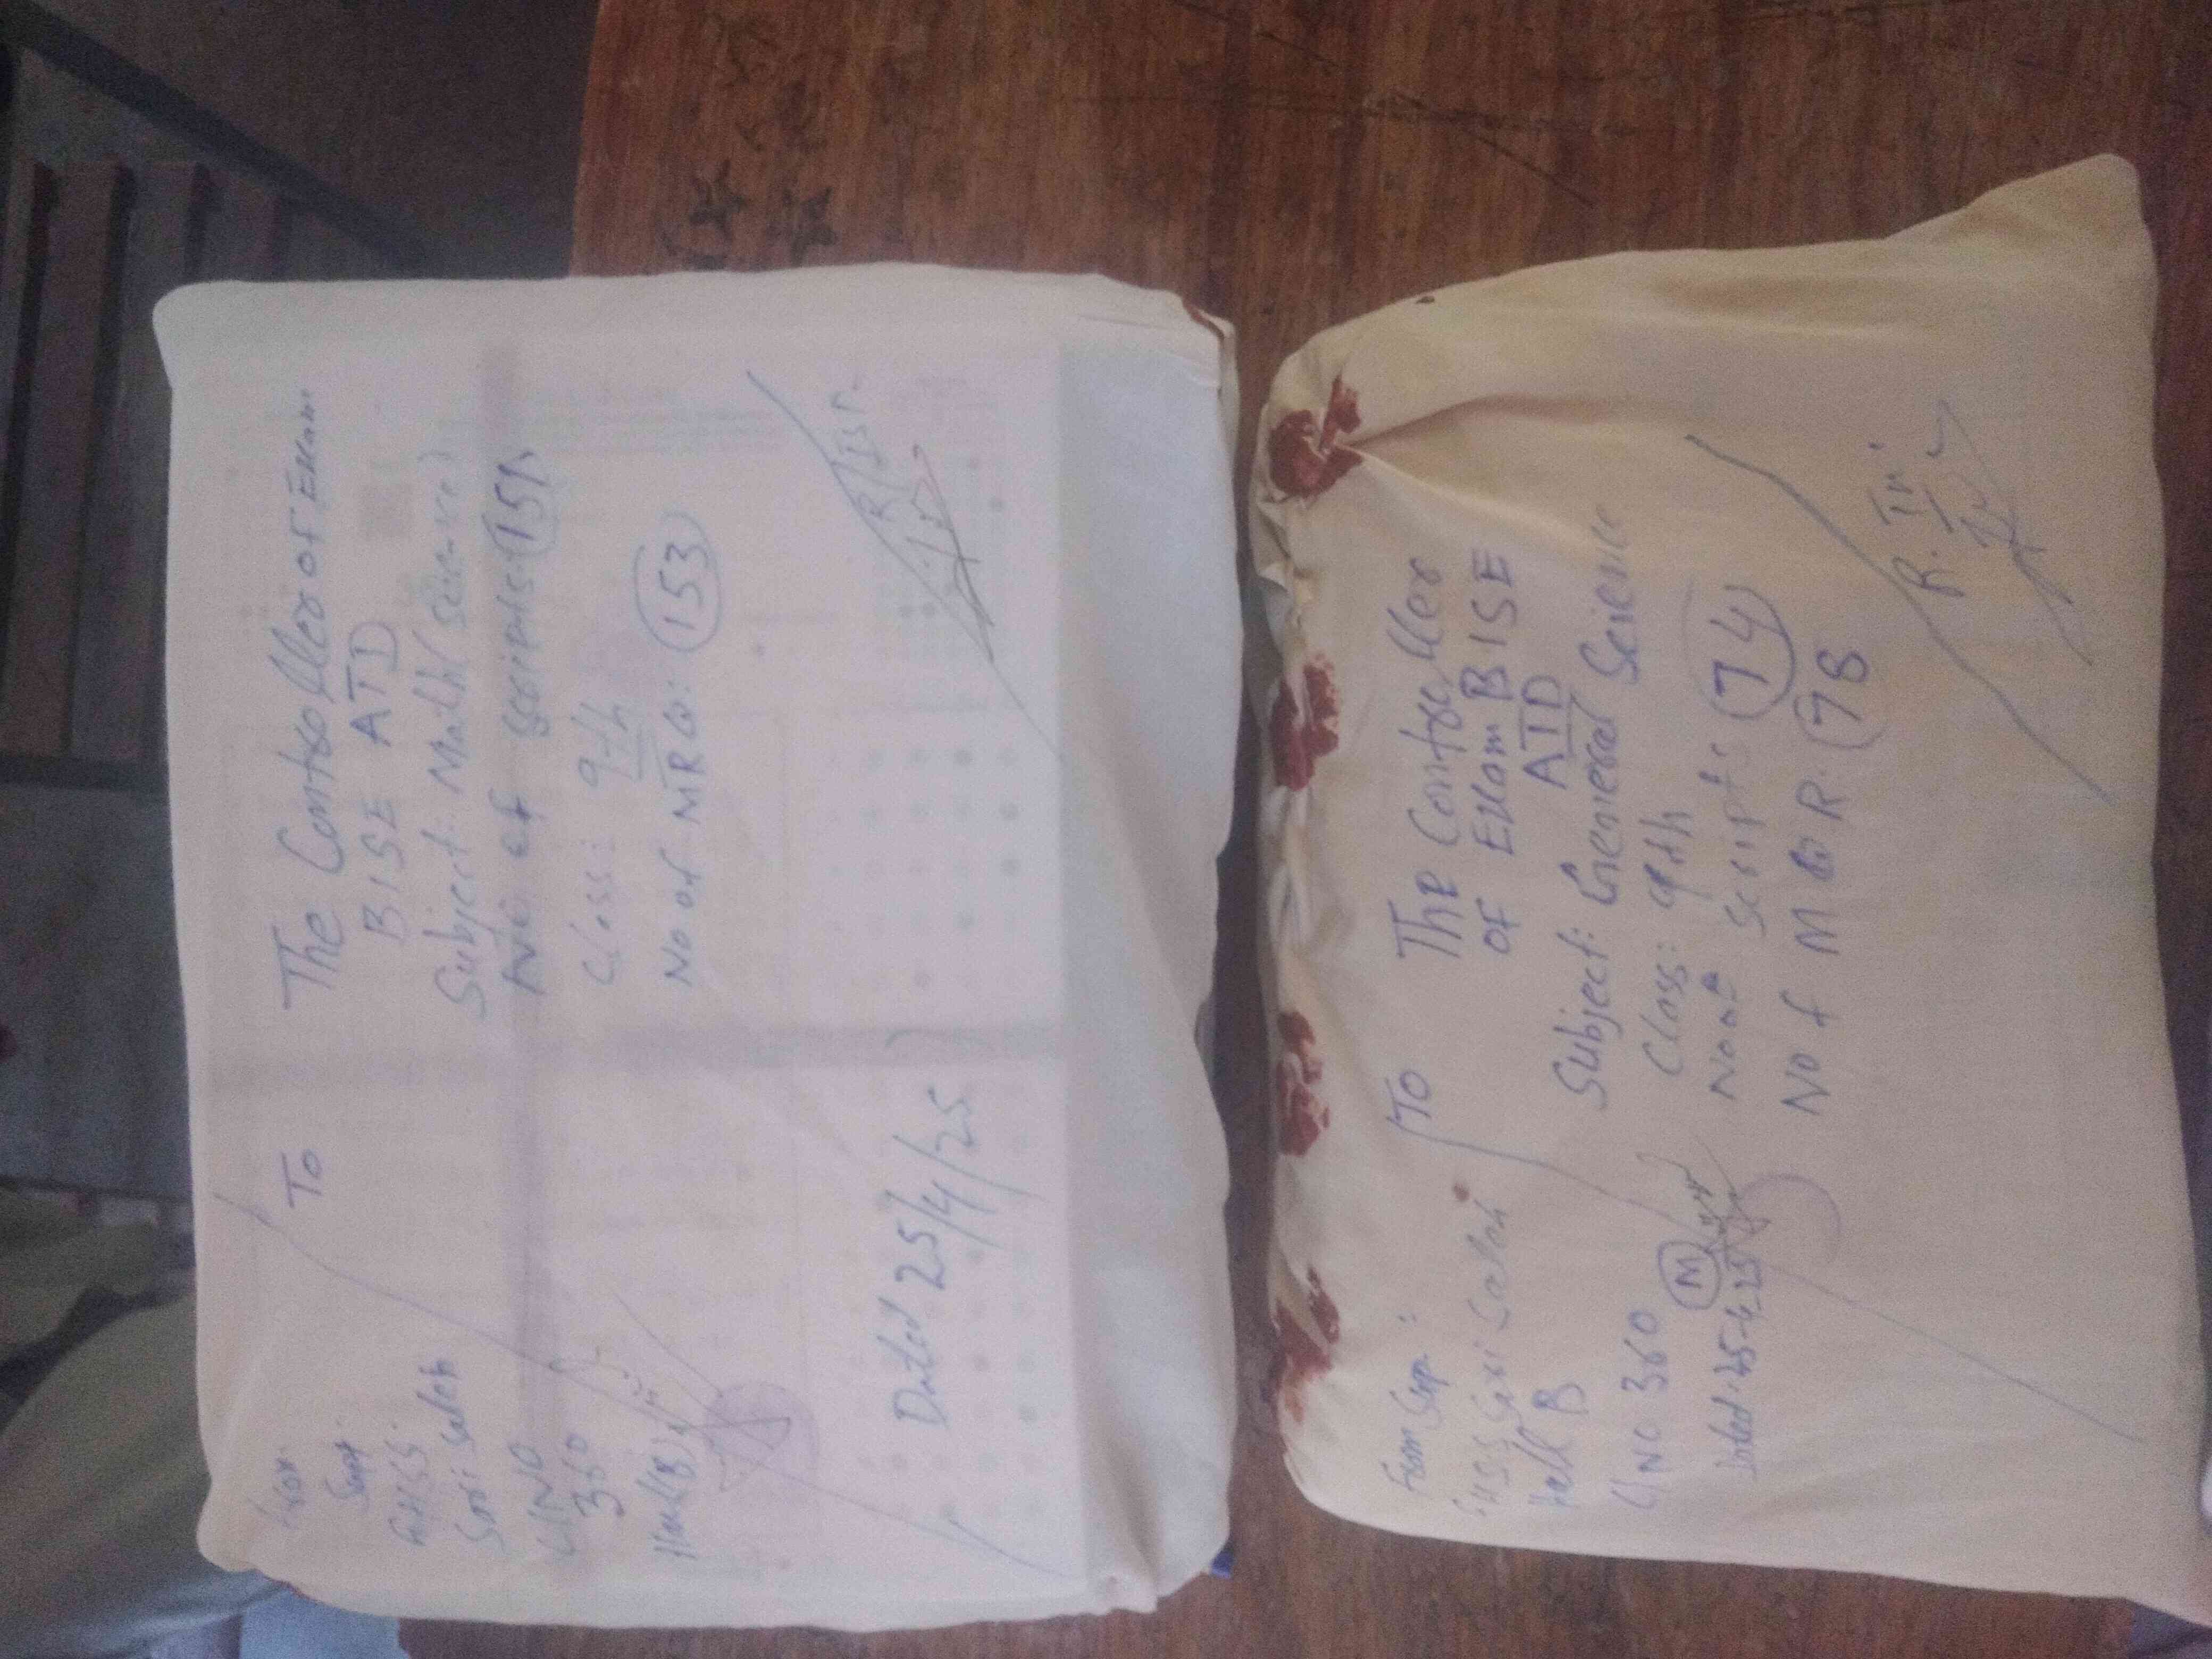 To
The Controller of Exam
BISE ATD
Subject: Math (science)
No of scripts: 151
Class: 9th
No of MRQ: 153
From
Supt
GHSS
Sari Saleh
C/No
360
Hall (B)
Dated 25/4/25
To
The Controller
of Exam BISE
ATD
Subject: General Science
Class: 9th
No of scripts: 74
No f M Q R. 78
From Sup:
GHSS Sari Saleh
Hall B
C/No 360
M
Dated: 25-4-25